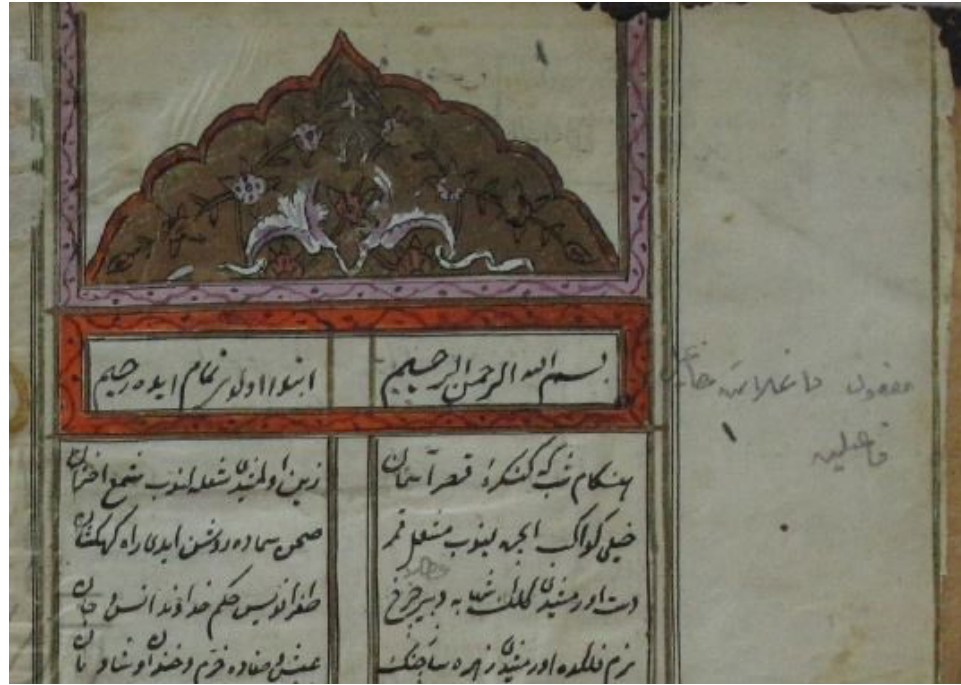 بسم الله الرحمن الرحيم ابتدا اولنور تمام ايده رحيم
هنكام شب كه كنكرۀ قصر آسمان زين اولمشيدى شعله لنوب شمع اختران
خيل كواكب ايچره يانوب مشعل قمر صحن سماده روشن ايدى راه كهكشان
دست اورمشيدى كلك شهابه دبير چرخ طغرا نويس حكم خداوند انس و جان
بزم فلكده اورمشيدى زهره سازه چنك عيش و صفاده خرم و خندان و شادمان
مفعول فاعلات مفاعيل
فاعلن